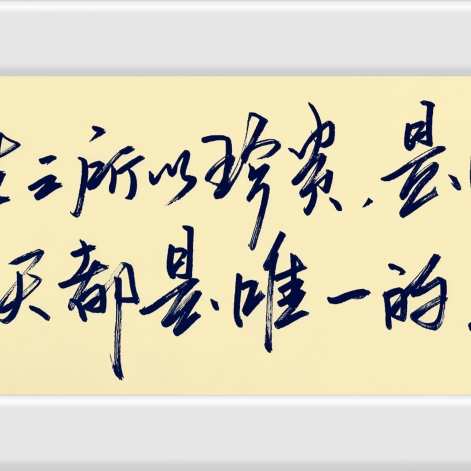 之所以珍贵，是
天都是唯一的